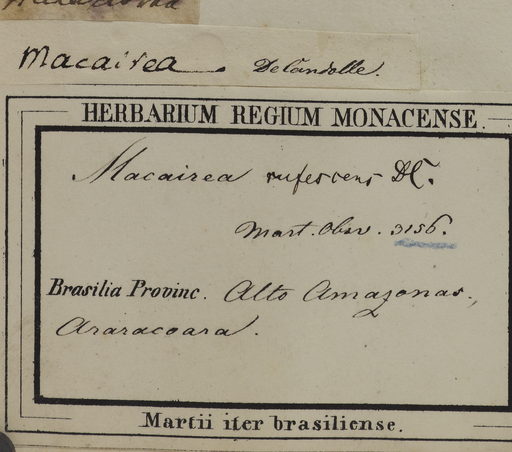 Macairea. DeCandolle.
HERBARIUM REGIUM MONACENSE.
Macairea rufescens DC.
Mart. Obsv. 3156.
Brasilia Provinc. Alto Amazonas,
Araracoara.
Martii iter brasiliense.